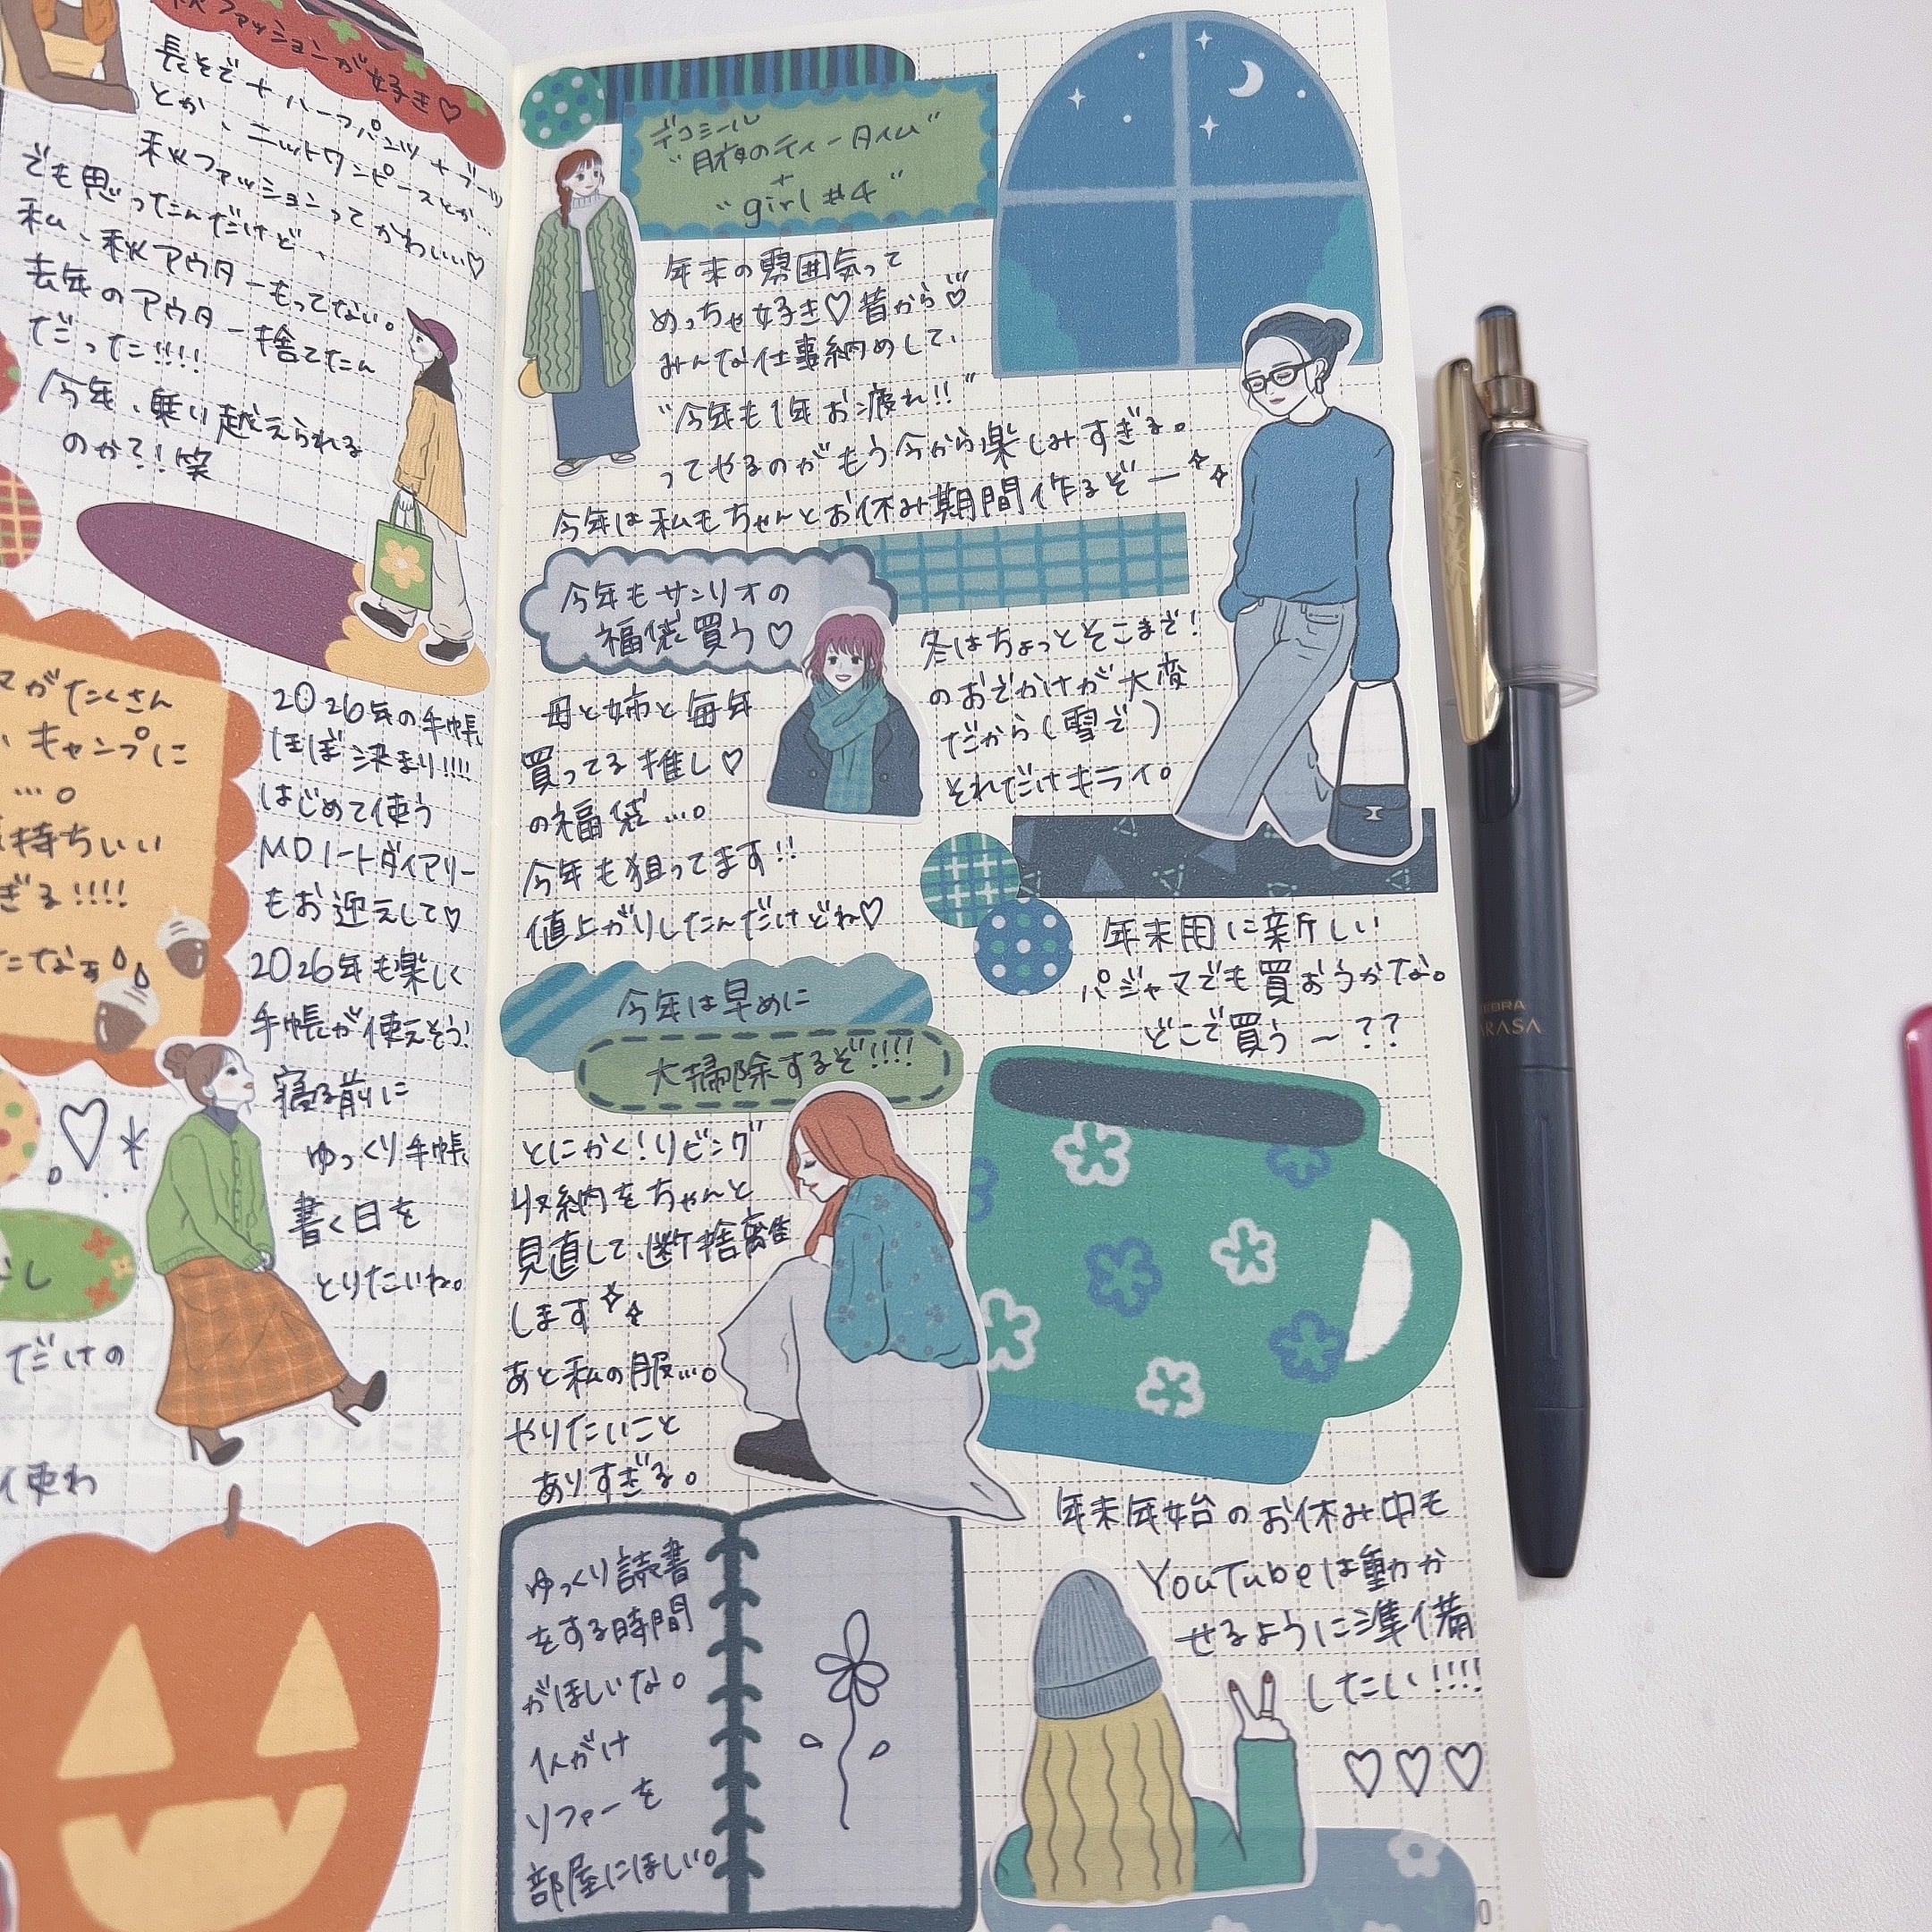 ファッションが好き♡
長そで+ハーフパンツ+ブーツ
とか、ニットワンピースとか…
秋ファッションってかわいい♡
でも思ったんだけど、
私、秋アウターもってない。
去年のアウター捨てたん
だった!!!!
今年、乗り越えられる
のか?!笑
マがたくさん
、キャンプに
…。
持ちいい
ぎる!!!!
2026年の手帳
ほぼ決まり!!!!
はじめて使う
MDノートダイアリー
もお迎えして♡
2026年も楽しく
手帳が使えそう!
寝る前に
ゆっくり手帳
書く日を
とりたいね。
だけの
使わ
デコミール
"月夜のティータイム"
+
"girl #4"
年末の雰囲気って
めっちゃ好き♡昔から♡
みんな仕事納めして、
"今年も1年お疲れ!!"
ってやるのがもう今から楽しみすぎる。
今年は私もちゃんとお休み期間作るぞー
今年もサンリオの
福袋買う♡
母と姉と毎年
買ってる推し♡
の福袋…。
今年も狙ってます!!
値上がりしたんだけどね♡
冬はちょっとそこまで!
のおでかけが大変
だから(雪で)
それだけキライ。
年末用に新しい
パジャマでも買おうかな。
どこで買う〜??
今年は早めに
大掃除するぞ!!!!
とにかく!リビング
収納をちゃんと
見直して、断捨離
します
あと私の服…。
やりたいこと
ありすぎる。
ゆっくり読書
をする時間
がほしいな。
1人がけ
ソファーを
部屋にほしい。
年末年始のお休み中も
YouTubeは動か
せるように準備
したい!!!!
♡♡♡